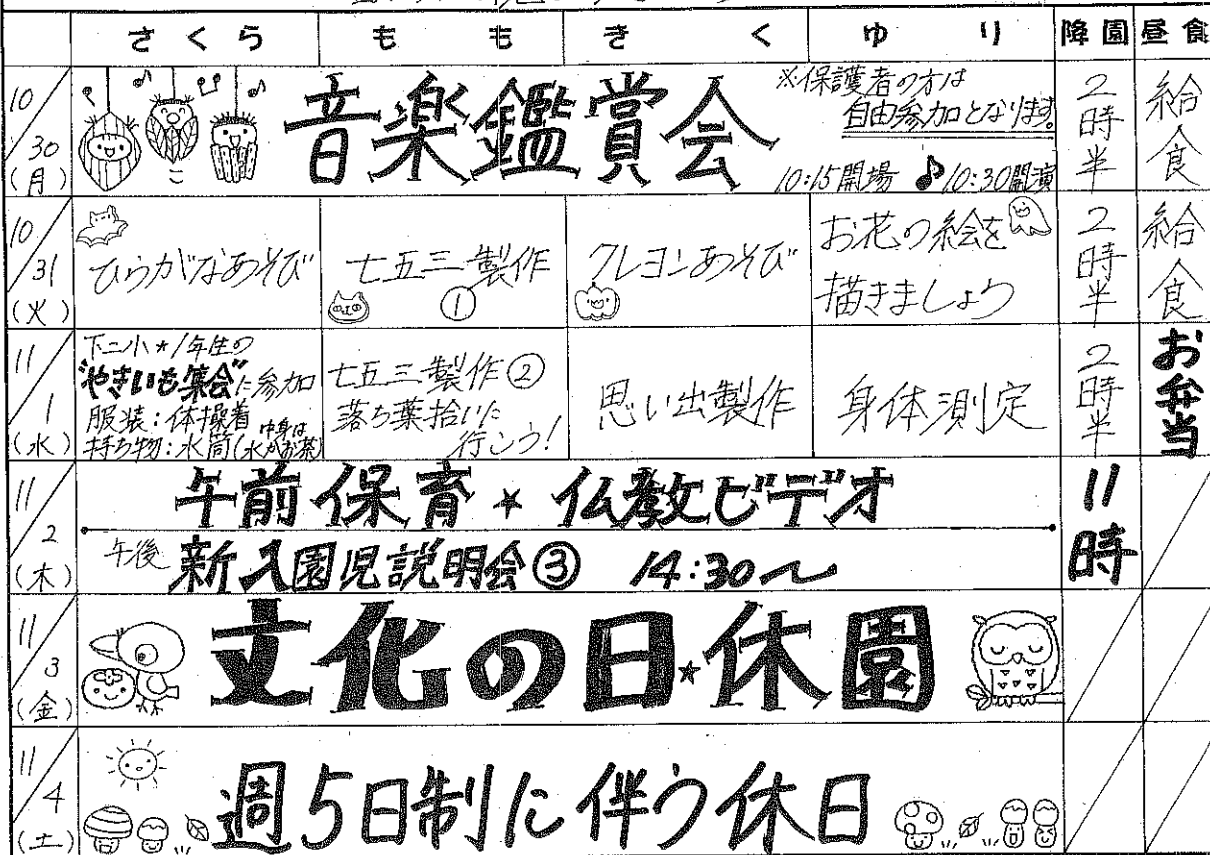 さくら もも きく ゆり 降園 昼食
10/30(月)
音楽鑑賞会
※保護者の方は
自由参加となります。
10:15開場 ♪10:30開演
2時半
給食
10/31(火)
ひらがなあそび
七五三製作
①
クレヨンあそび
お花の絵を
描きましょう
2時半
給食
11/1(水)
下二小★1年生の
"やきいも集会"に参加
服装:体操着
持ち物:水筒(中身は水かお茶)
七五三製作②
落ち葉拾いに
行こう!
思い出製作
身体測定
2時半
お弁当
11/2(木)
午前保育★仏教ビデオ
午後 新入園児説明会③ 14:30〜
11時
11/3(金)
文化の日★休園
11/4(土)
週5日制に伴う休日